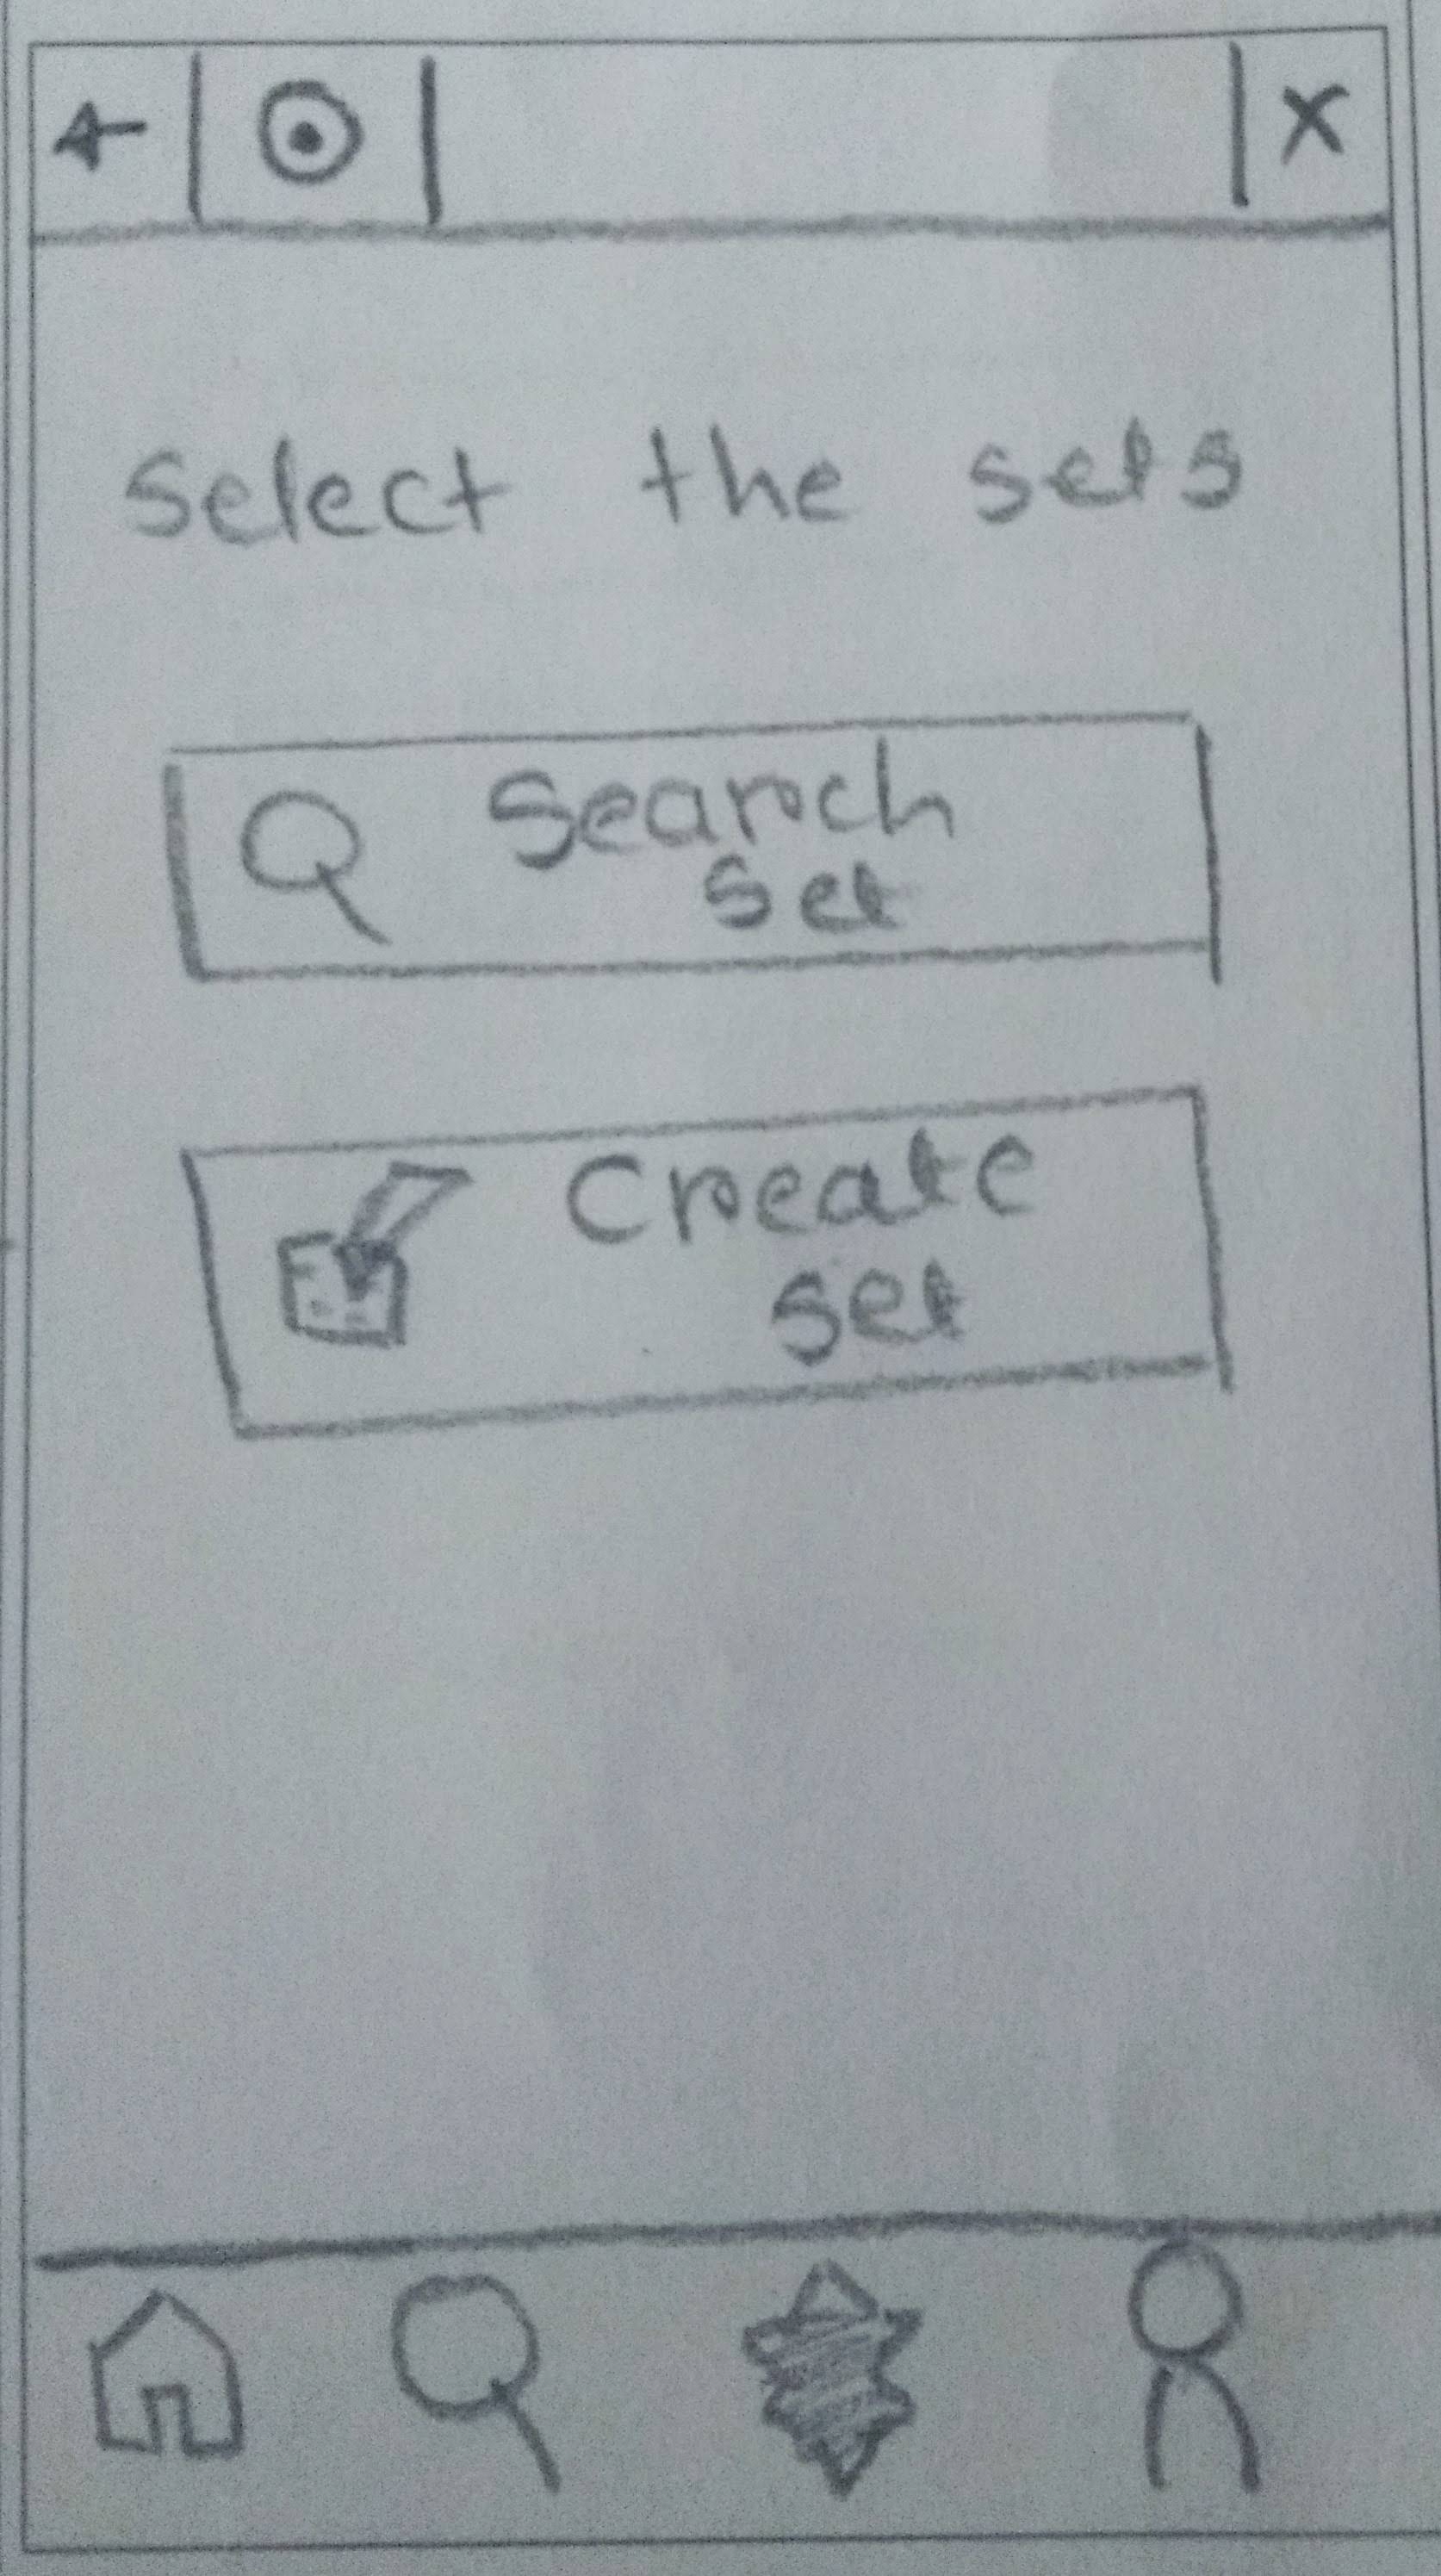 Select the sets
Search
set
Create
set